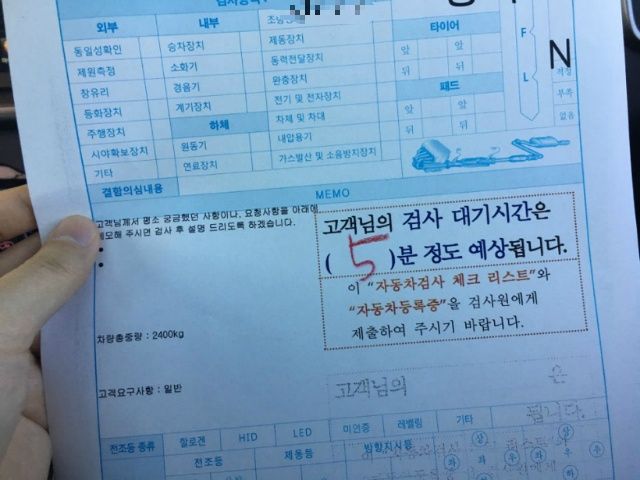 외부 내부 타이어
동일성확인 승차장치 제동장치 앞 앞
제원측정 소화기 동력전달장치 뒤 뒤
창유리 경음기 완충장치 패드
등화장치 계기장치 전기 및 전자장치 앞 앞
주행장치 하체 차체 및 차대 뒤 뒤
시야확보장치 원동기 내압용기
기타 연료장치 가스발산 및 소음방지장치
F
L
N
적정
부족
없음
결함의심내용
MEMO
고객님께서 평소 궁금했던 사항이나, 요청사항을 아래에
메모해 주시면 검사 후 설명 드리도록 하겠습니다.
고객님의 검사 대기시간은
( 5 )분 정도 예상됩니다.
이 "자동차검사 체크 리스트"와
"자동차등록증"을 검사원에게
제출하여 주시기 바랍니다.
차량총중량 : 2400kg
고객요구사항 : 일반
고객님의 은
됩니다.
전조등 종류 할로겐 HID LED 미인증 레벨링 기타
전조등 제동등 방향지시등
상 상
좌 좌 우 우
하